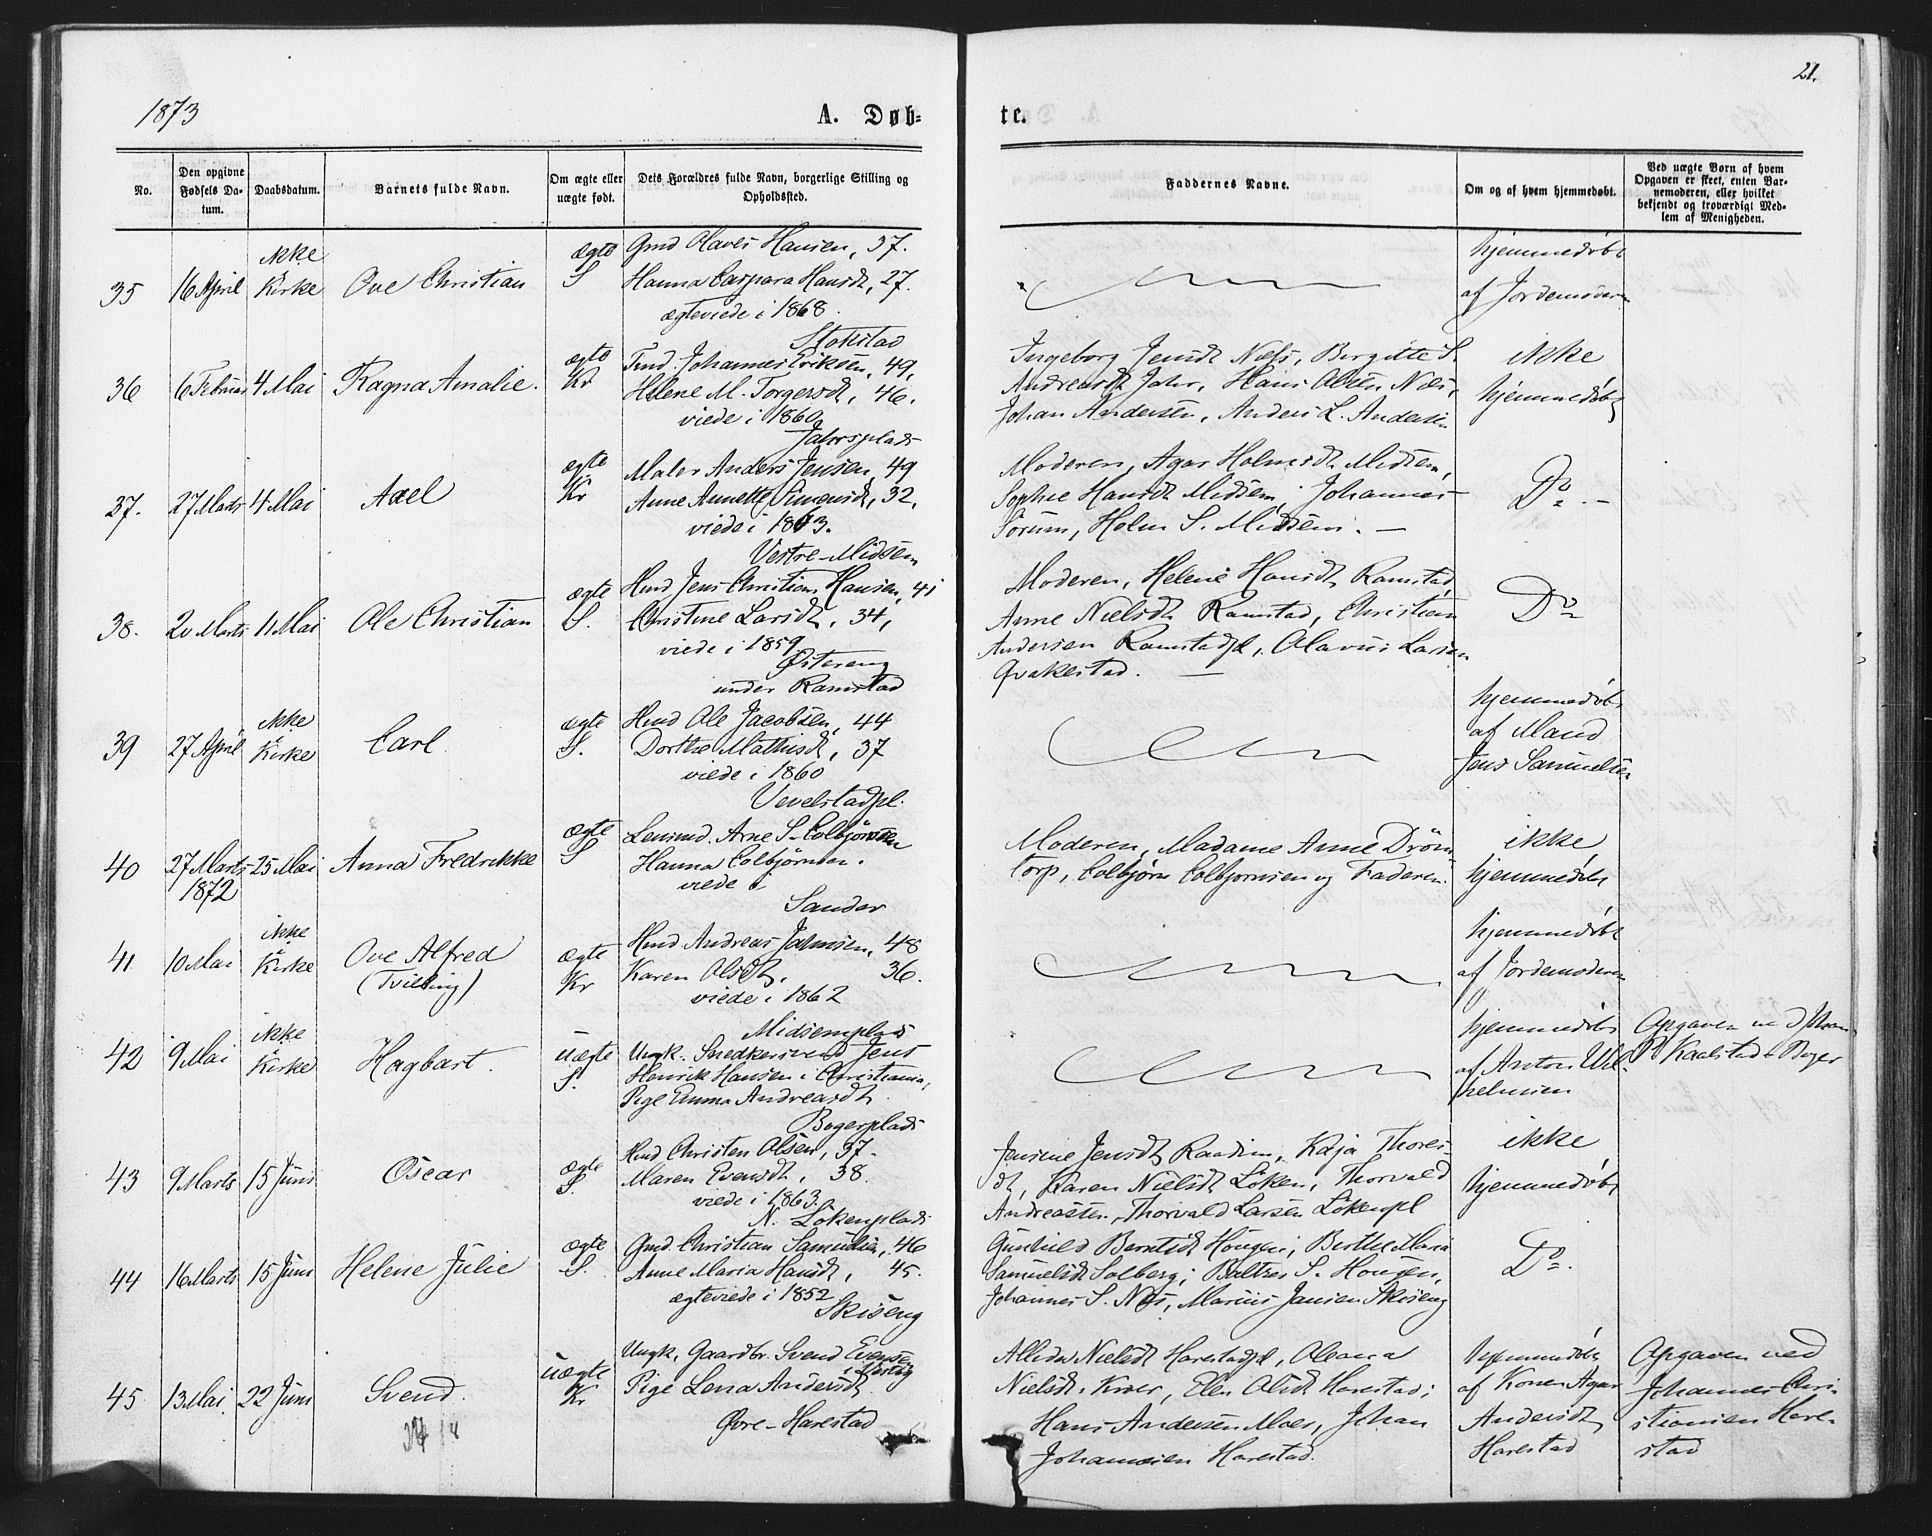 21.
1873
A. Døb-
te.
No.
Den opgivne Fødsels Da-tum.
Daabsdatum.
Barnets fulde Navn.
Om ægte eller uægte født.
Dets Forældres fulde Navn, borgerlige Stilling og Opholdssted.
Faddernes Navne.
Om og af hvem hjemmedøbt.
Ved uægte Børn af hvem Opgaven er skeet, enten Bar-nemoderen, eller hvilket bekjendt og troværdigt Med-lem af Menigheden.
35
16 April
ikke
i
Kirke
Ove Christian
ægte
S
Gmd Olaves Hansen, 37.
Hanna Caspara Hansdt, 27.
ægteviede i 1868.
Stokstad
hjemmedøbt
af Jordemoderen
36
6 Februar
4 Mai
Ragna Amalie.
ægte
Kr
Tmd. Johannes Eriksen, 49,
Helene M. Torgersdt, 46.
viede i 1860
Jahrsplads
Ingeborg Jensdt Næss, Birgitte S.
Andreasdt Jahr, Hans Olsen Næs,
Johan Andersen, Anders L. Andersen
ikke
hjemmedøbt
37.
27 Marts
4 Mai
Axel
ægte
Kr
Maler Anders Jensen, 49
Anne Annette Simensdt, 32,
viede i 1863.
Vestre-Midsem
Moderen, Agar Holmsdt Midsem,
Sophie Hansdt Midsem, Johannes
Sørum, Holm S. Midsem. —
Do. —
38.
20 Marts
11 Mai
Ole Christian
ægte
S.
Hmd Jens Christian Hansen, 41
Christine Larsdt, 34,
viede i 1859
Østereng
under Ramstad
Moderen, Helene Hansdt Ramstad,
Anne Nielsdt Ramstad, Christian
Andersen Ramstadjd, Olavus Larsen
Qvakestad. —
Do
39
27 April
ikke
i
Kirke
Carl
ægte
S.
Hmd Ole Jacobsen, 44
Dorthe Mathisdt, 37
viede i 1860
Vevelstadpl.
hjemmedøbt
af Mand
Jens Samuelsen
40
27 Marts
1872
25 Mai
Anna Fredrikke
ægte
S
Lensmd. Arne S. Colbjørnsen
Hanna Colbjørnsen.
viede i
Sander
Moderen, Madame Anne Drøm
torp, Colbjørn Colbjørnsen og Faderen.
ikke
hjemmedøbt
41
10 Mai
ikke
i
Kirke
Ove Alfred
(Tvilling)
ægte
Kr
Hmd Andreas Johnsen, 48
Karen Olsdt, 36.
viede i 1862
Midsemplads
hjemmedøbt
af Jordemoderen
42
9 Mai
ikke
i
Kirke
Hagbart.
uægte
S.
Ungk. Snedkersvend Jens
Henrik Hansen i Christiania,
Pige Emma Andreasdt.
Bøgerplads
hjemmedøbt
af Anton Wil-
helmsen
Opgaven ved
P. Kaalstad Bøger
43
9 Marts
15 Juni
Oscar
ægte
S.
Hmd Christen Olsen, 37.
Maren Evensdt, 38.
viede i 1863.
N. Løkenplads
Jensine Jensdt Raadim, Kaja Thores-
dt, Karen Nielsdt Løken, Thorvald
Andreassen, Thorvald Larsen Løkenpl
ikke
hjemmedøbt
44
16 Marts
15 Juni
Helene Julie
ægte
S.
Gmd. Christian Samuelsen, 46
Anne Maria Hansdt, 45.
ægteviede i 1852
Skiseng
Gunhild Berntsdt Hougen, Berthe Maria
Samuelsdt Solberg; Baltzer S. Hougen,
Johannes S. Næs, Marius Jansen Skiseng
Do.
45
13 Mai
22 Juni
Svend.
uægte
Kr
Ungk. Gaardbr. Svend Evensen
Pige Lena Andersdt
Øvre-Harestad
Allida Nielsdt Harestadjd, Oleana
Nielsdt. Kroer, Elen Olsdt Harestad;
Hans Andersen Moer, Johan
Johannesen Harestad.
hjemmedøbt
af Konen Agar
Andersdt
Harestad
Opgaven ved
Johannes Chri-
stiansen Hare-
stad